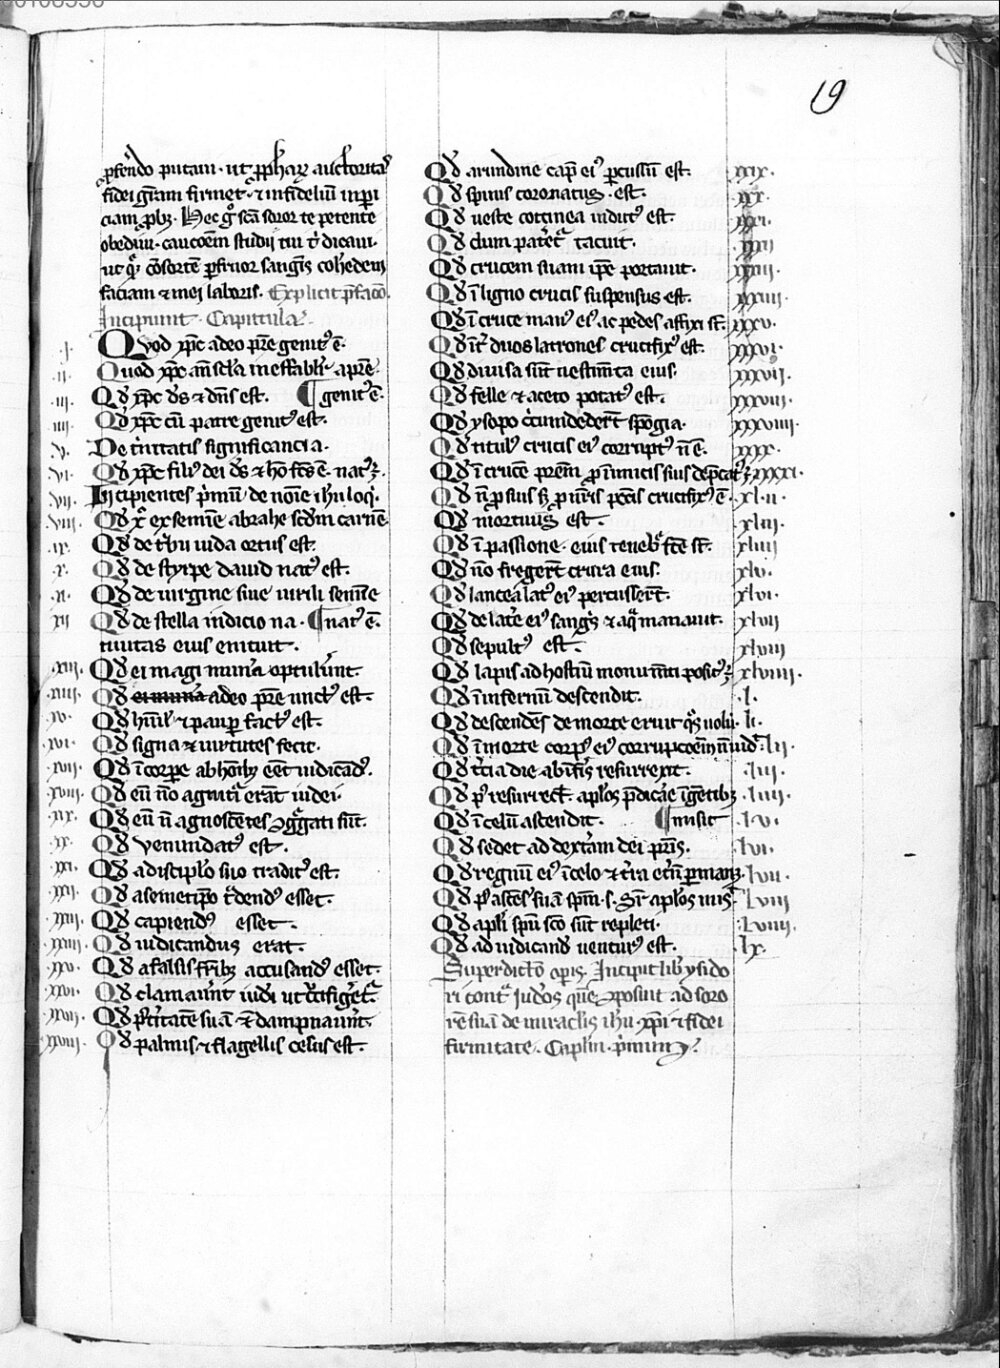 19
ꝓferendo putaui · ut ꝓphaꝝ auctoritas
fidei gr̄am firmet · ⁊ infideliū inperi
ciam ꝓbꝫ · Hec gͦ sc̄a soror te petente
obediui ·
ut consortē ꝑfruor sangˢ coheredem
faciam ⁊ mei laboris · Explicit p̄facō ·
Incipiunt · Capitula ·
.i. Quod xp̄c a deo pr̄e genitꝰ ē ·
.ii. Quod xp̄c an̄ scl̄a ineffabilr̄ a pr̄e
.iii. Qd̓ xp̄c d̄s ⁊ dn̄s est · ¶ genitꝰ ē ·
.iiii. Qd̓ xp̄c cū patre genitꝰ est ·
.v. De t̓nitatis significancia ·
.vi. Qd̓ xp̄c filiꝰ dei d̄s ⁊ hō fc̄s ē · natꝰ ꝫ
.vii. Incipientes p̓mū de noīe ih̄u loq̓ ·
.viii. Qd̓ xc̄ ex semīe abrahe scd̄m carnē
.ix. Qd̓ de t̓bu iuda ortus est ·
.x. Qd̓ de styrpe dauid natꝰ est ·
.xi. Qd̓ de uirgine siue uirili semīe
.xii Qd̓ de stella indicio na · ¶ natꝰ ē ·
tiuitas eius enituit ·
.xiii. Qd̓ ei magi mun̄a optulerūnt ·
.xiiii. Qd̓ ei muna a deo pr̄e unctꝰ est ·
.xv. Qd̓ hūil̓ ⁊ pauꝑ factꝰ est ·
.xvi. Qd̓ signa ⁊ uirtutes fecit ·
.xvii. Qd̓ ī corꝑe ab hoīibꝫ eēt uidendꝰ ·
.xviii. Qd̓ eū nō agnituri erāt iudei ·
.xix. Qd̓ eū n̄ agnoscētes ꝯg̓gati sūt ·
.xx. Qd̓ uenundatꝰ est ·
.xxi. Qd̓ a discipl̓o suo traditꝰ est ·
.xxii. Qd̓ a semetip̄o t̓dendꝰ esset ·
.xxiii. Qd̓ capiendꝰ esset ·
.xxiiii. Qd̓ iudicandus erat ·
.xxv. Qd̓ a falsis fr̄ibꝫ accusandꝰ esset ·
.xxvi. Qd̓ clamauer̄nt iudei ut crucifigeret᷑
.xxvii. Qd̓ posteritatē suā ⁊ dampnauer̄nt ·
.xxviii. Qd̓ palmis ⁊ flagellis cesus est ·
Qd̓ arundine cap̄ eiꝰ ꝑcussū est · xxix ·
Qd̓ spinis coronatus · est · xxx ·
Qd̓ ueste coccinea indutꝰ est · xxxi ·
Qd̓ dum patēet᷑ tacuit · xxxii
Qd̓ crucem suam ip̄e portauit · xxxiii ·
Qd̓ ī ligno crucis suspensus est · xxxiiii ·
Qd̓ ī cruce manꝰ eiꝰ ac pedes affixi s̄t · xxxv ·
Qd̓ īt̓ duos latrones crucifixꝰ est · xxxvi ·
Qd̓ diuisa sūt uestim̄ta eius · xxxvii ·
Qd̓ felle ⁊ aceto potatꝰ est · xxxviii ·
Qd̓ ysopo circūdeder̄t spōgia · xxxviiii ·
Qd̓ titulꝰ crucis eiꝰ corruptꝰ n̄ ē · xxxx ·
Qd̓ ī cruce pr̄em ꝓ inimicis suis dep̄catꝰ ꝫ xxxxi ·
Qd̓ n̄ ꝓ suis sꝫ ꝓ nr̄is pcc̄is crucifixꝰ ē · xl·ii ·
Qd̓ mortuus est · xliii ·
Qd̓ ī passione · eius tenebr̄ fc̄e s̄t · xliiii
Qd̓ nō freger̄t crura eius · xlv ·
Qd̓ lancea latꝰ eiꝰ percusser̄t · xlvi ·
Qd̓ de lat̓e eiꝰ sangˢ ⁊ aq̄ manauit · xlvii
Qd̓ sepultꝰ est · xlviii
Qd̓ lapis ad hostiū monum̄ti positꝰ ꝫ xlviiii ·
Qd̓ ī infernū descendit · .l.
Qd̓ descendēs de morte eruit q̄s uoluit · li ·
Qd̓ ī morte corpꝰ eiꝰ corrupcōem n̄ uidit · lii ·
Qd̓ t̓cia die ab inferis resurrexit · .liii ·
Qd̓ pꝰ resurrect̄ · apl̓os p̄dicare ī gētibꝫ .liiii ·
Qd̓ ī celū ascendit · ¶ misit .lv ·
Qd̓ sedet ad dextram dei pr̄is · .lvi ·
Qd̓ regnū eiꝰ ī celo ⁊ t̓ra et̓nū ꝑmanꝫ · .lvii ·
Qd̓ pꝰ ascens̄ suā sp̄m · s̄ · sr̄ apl̓os mis̄ .lviii
Qd̓ apl̓i sp̄u sc̄o sūt repleti · .lviiii ·
Qd̓ ad iudicand̄ uenturꝰ est · .lx ·
Superdictō oꝑis · Incipit lib̓ ysido
ri cont̓ Iudeos quē ꝯposuit ad soro
rē suā de miraclis ih̄u xp̄i ⁊ fidei
firmitate · Capl̓m · p̓mum ·